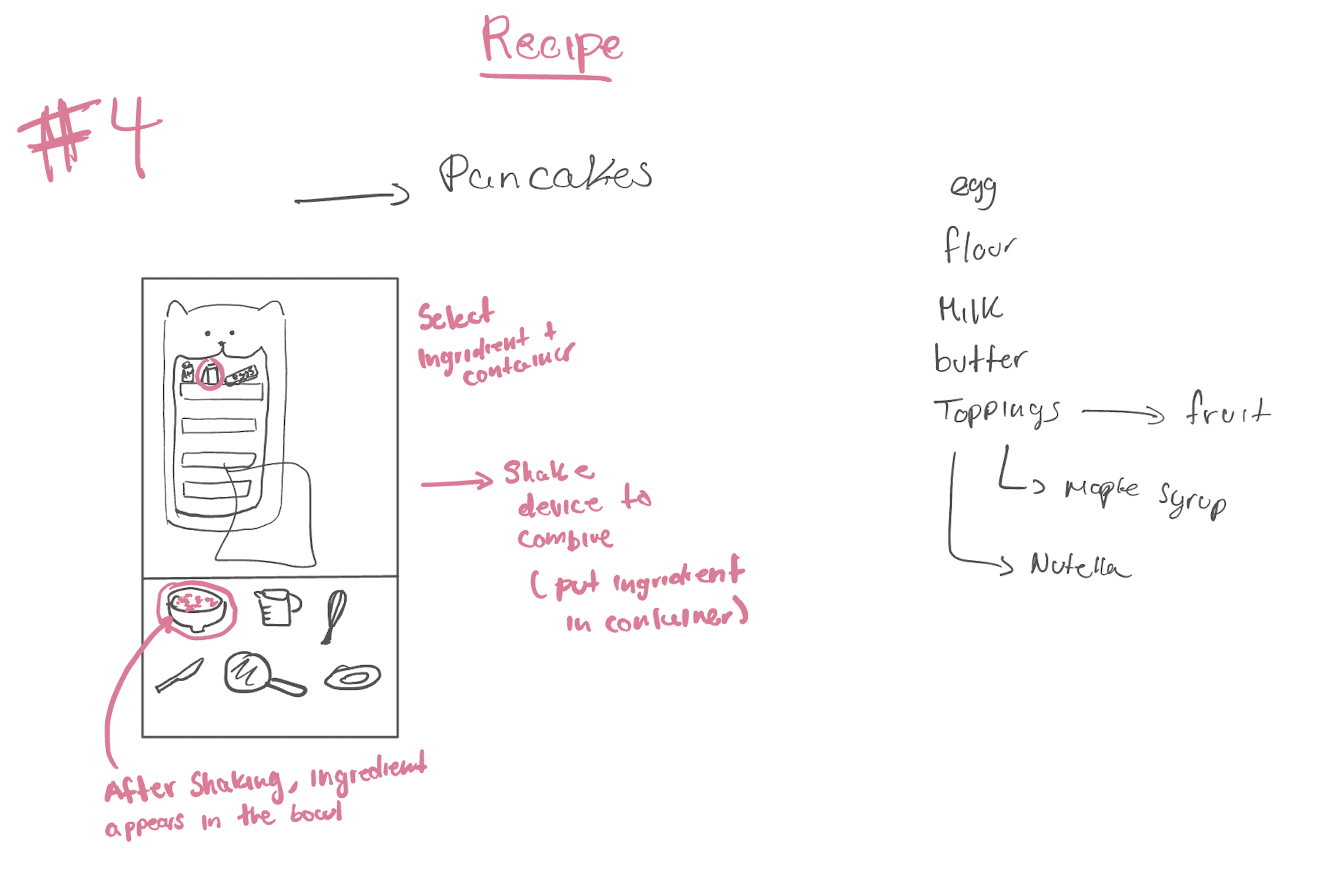 Recipe
#4
Pancakes
Select
ingredient +
container
Shake
device to
combine
(put ingredient
in container)
After Shaking, ingredient
appears in the bowl
egg
flour
Milk
butter
Toppings
fruit
Maple Syrup
Nutella